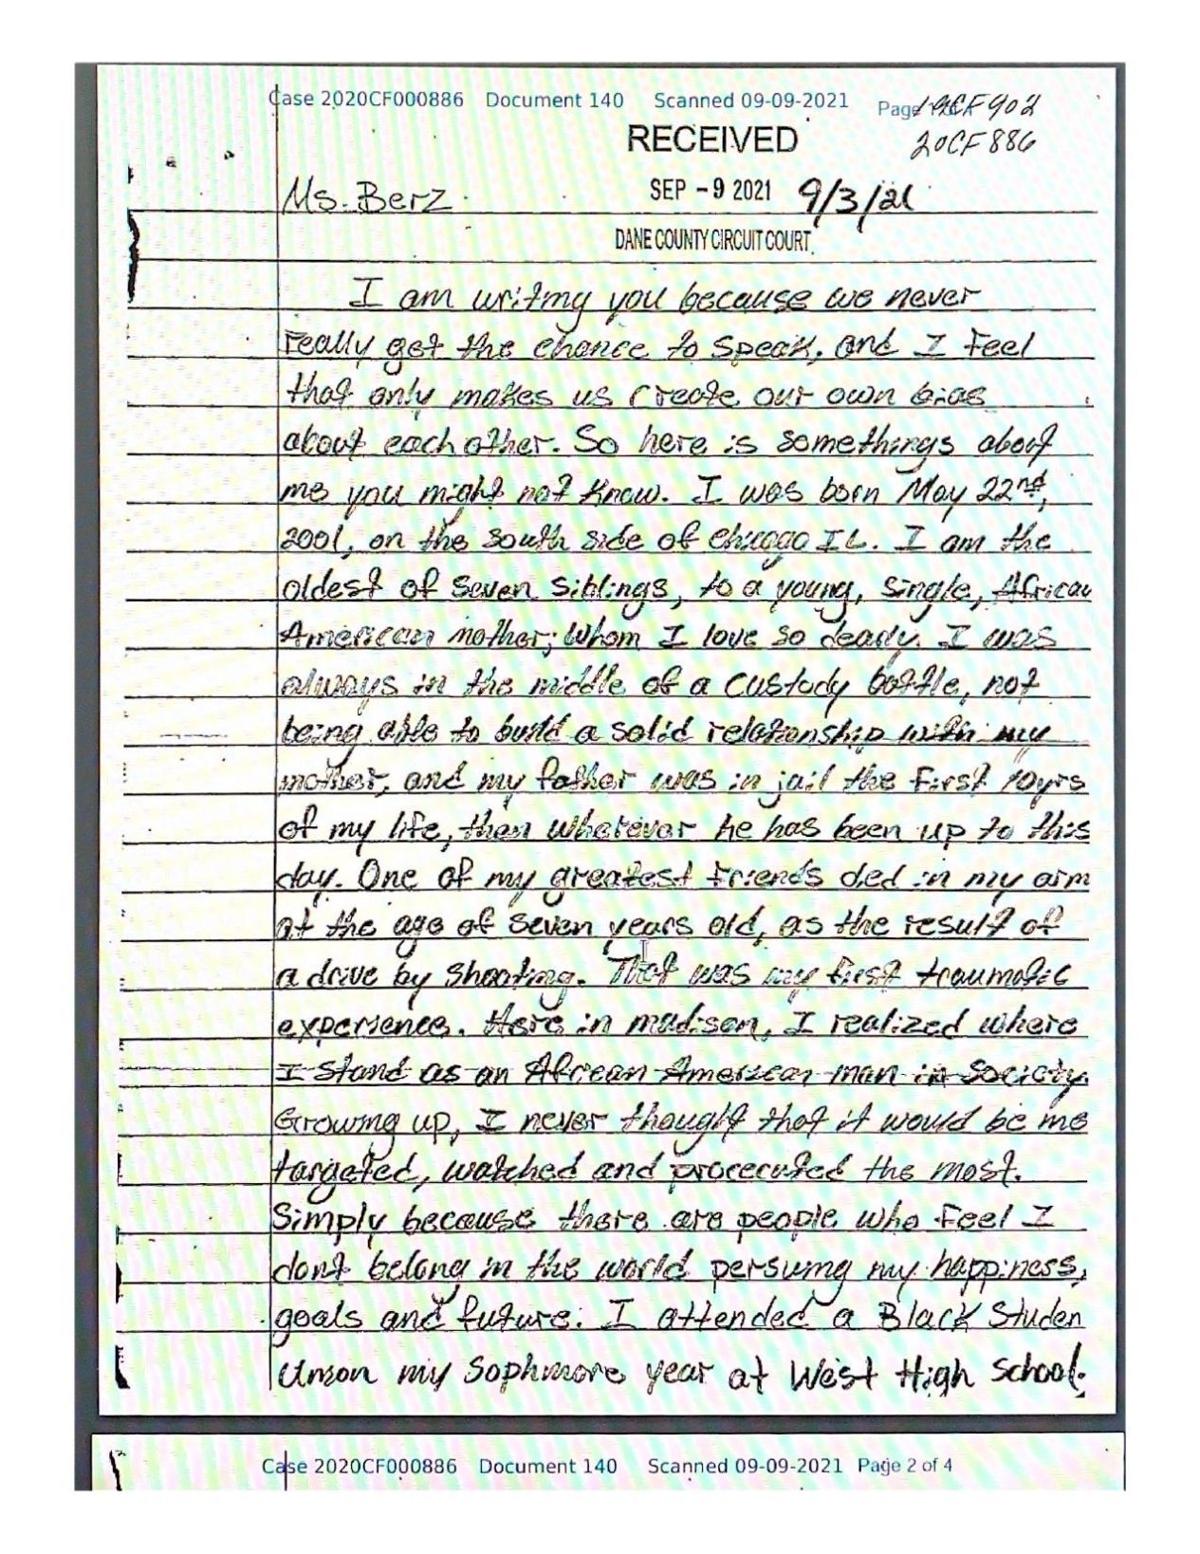 Case 2020CF000886 Document 140 Scanned 09-09-2021 Page 19CF902
RECEIVED 20CF886
Ms. Berz SEP -9 2021 9/3/21
DANE COUNTY CIRCUIT COURT
I am writing you because we never
really get the chance to speak, and I feel
that only makes us create our own bias
about each other. So here is somethings about
me you might not know. I was born May 22nd,
2001, on the south side of chicago IL. I am the
oldest of seven siblings, to a young, single, African
American mother; whom I love so dearly. I was
always in the middle of a custody battle, not
being able to build a solid relationship with my
mother, and my father was in jail the first 10yrs
of my life, then wherever he has been up to this
day. One of my greatest friends died in my arm
at the age of seven years old, as the result of
a drive by shooting. That was my first traumatic
experience. Here in madison, I realized where
I stand as an African American man in society.
Growing up, I never thought that it would be me
targeted, watched and procecuted the most.
Simply because there are people who feel I
dont belong in the world persuing my happiness,
goals and future. I attended a Black Studen
Union my Sophmore year at West High School.
Case 2020CF000886 Document 140 Scanned 09-09-2021 Page 2 of 4